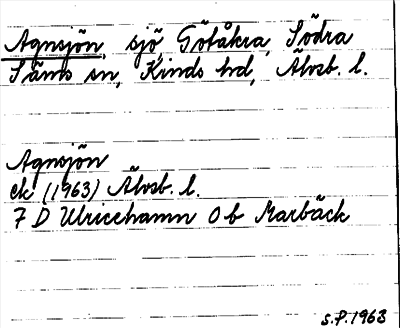 Agnsjön, sjö, Götåkra, Södra
Säms sn, Kinds hd, Älvsb. l.
Agnsjön
ek (1963) Älvsb. l.
7 D Ulricehamn 0 b Marbäck
S.P. 1963